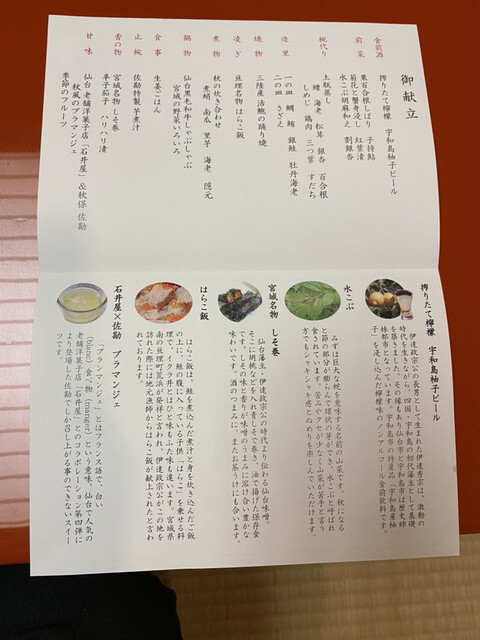 御献立
食前酒
搾りたて檸檬 宇和島柚子ビール
前菜
栗百合根しぼり 子持鮎
菊花と蟹身浸し 紅葉漬
水こぶ胡麻和え 割銀杏
椀代り
土瓶蒸し
鱧 海老 松茸 銀杏 百合根
しめじ 鶏肉 三つ葉 すだち
造里
一の皿 鯛 鮪 銀鮭 牡丹海老
二の皿 さざえ
焼物
三陸産活鮑の踊り焼
凌ぎ
亘理名物 はらこ飯
煮物
秋の炊き合わせ
煮蛸 南瓜 里芋 海老 隠元
鍋物
仙台黒毛和牛しゃぶしゃぶ
宮城の野菜いろいろ
食事
生姜ごはん
止椀
佐勘特製芋煮汁
香の物
宮城名物 しそ巻
辛子茄子 ハリハリ漬
甘味
仙台 老舗洋菓子店「石井屋」&秋保 佐勘
秋風のブラマンジェ
季節のフルーツ
搾りたて檸檬 宇和島柚子ビール
伊達政宗公の長男として生まれた伊達秀宗は、激動の
時代を生きながら、四国・宇和島の初代藩主として基礎
を築きました。その縁もあり仙台市と宇和島市は歴史姉
妹都市となっています。宇和島市の特産品「宇和島産柚
子」を浸し込んだ檸檬味のノンアルコール食前飲料です。
水こぶ
みずは巨大な蛇を意味する名前の山菜です。秋になる
と節の部分が膨らんで球状の芽ができ、水こぶと呼ばれ
食されています。苦みやクセが少なく山菜が苦手と言う
方でもシャキシャキ感とぬめりを楽しんでいただけます。
宮城名物 しそ巻
仙台藩主・伊達政宗公の時代より伝わる仙台味噌。
そこに胡桃などを入れ青しそで巻き、油で揚げた保存食
です。しその味と香りが味噌のうまみに溶け合い豊かな
味わいです。酒のつまみに、またお茶うけにも合います。
はらこ飯
はらこ飯は、鮭を煮込んだ煮汁と身を炊き込んだご飯
の上に、鮭の腹に入っている子供「はらこ」を乗せる料
理で、イクラ丼とはひと味もふた味も違います。宮城県
南の亘理町荒浜が発祥と言われ、伊達政宗公がこの地を
訪れた際に地元漁師からはらこ飯が献上されたと言わ
れております。
石井屋×佐勘 ブラマンジェ
「ブランマンジェ」とはフランス語で、白い
(blanc)食べ物(manger)という意味。仙台で人気の
老舗洋菓子店「石井屋」とのコラボレーション第四弾に
より登場した佐勘でしか召し上がる事のできないスイー
ツです。